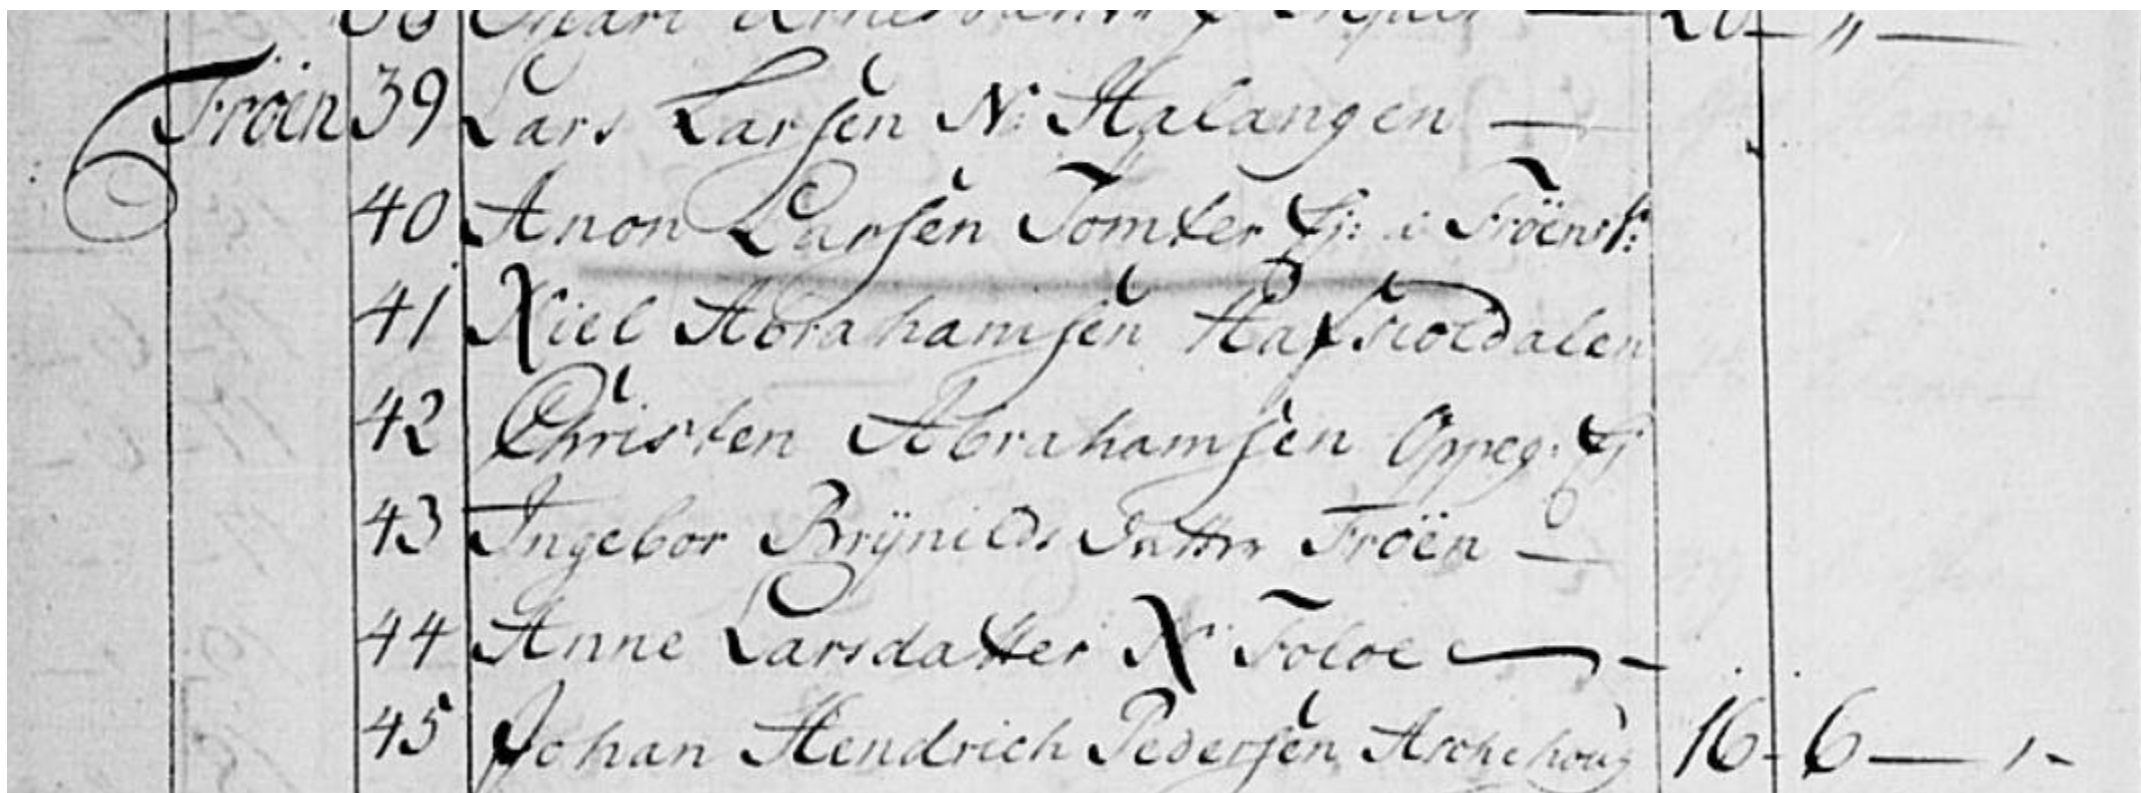 39 Lars Larsen N: Halangen —
Fröen
40 Anon Larsen Tomter Ej: i Fröens S:
41 Niel Abrahamsen Hafsioldalen
42 Christen Abrahamsen Oppeg: Ej
43 Ingebor Brÿnilds Datter Fröen —
44 Anne Larsdatter N: Foloe —
45 Johan Hendrich Pedersen Aschehoug 16 - 6 —